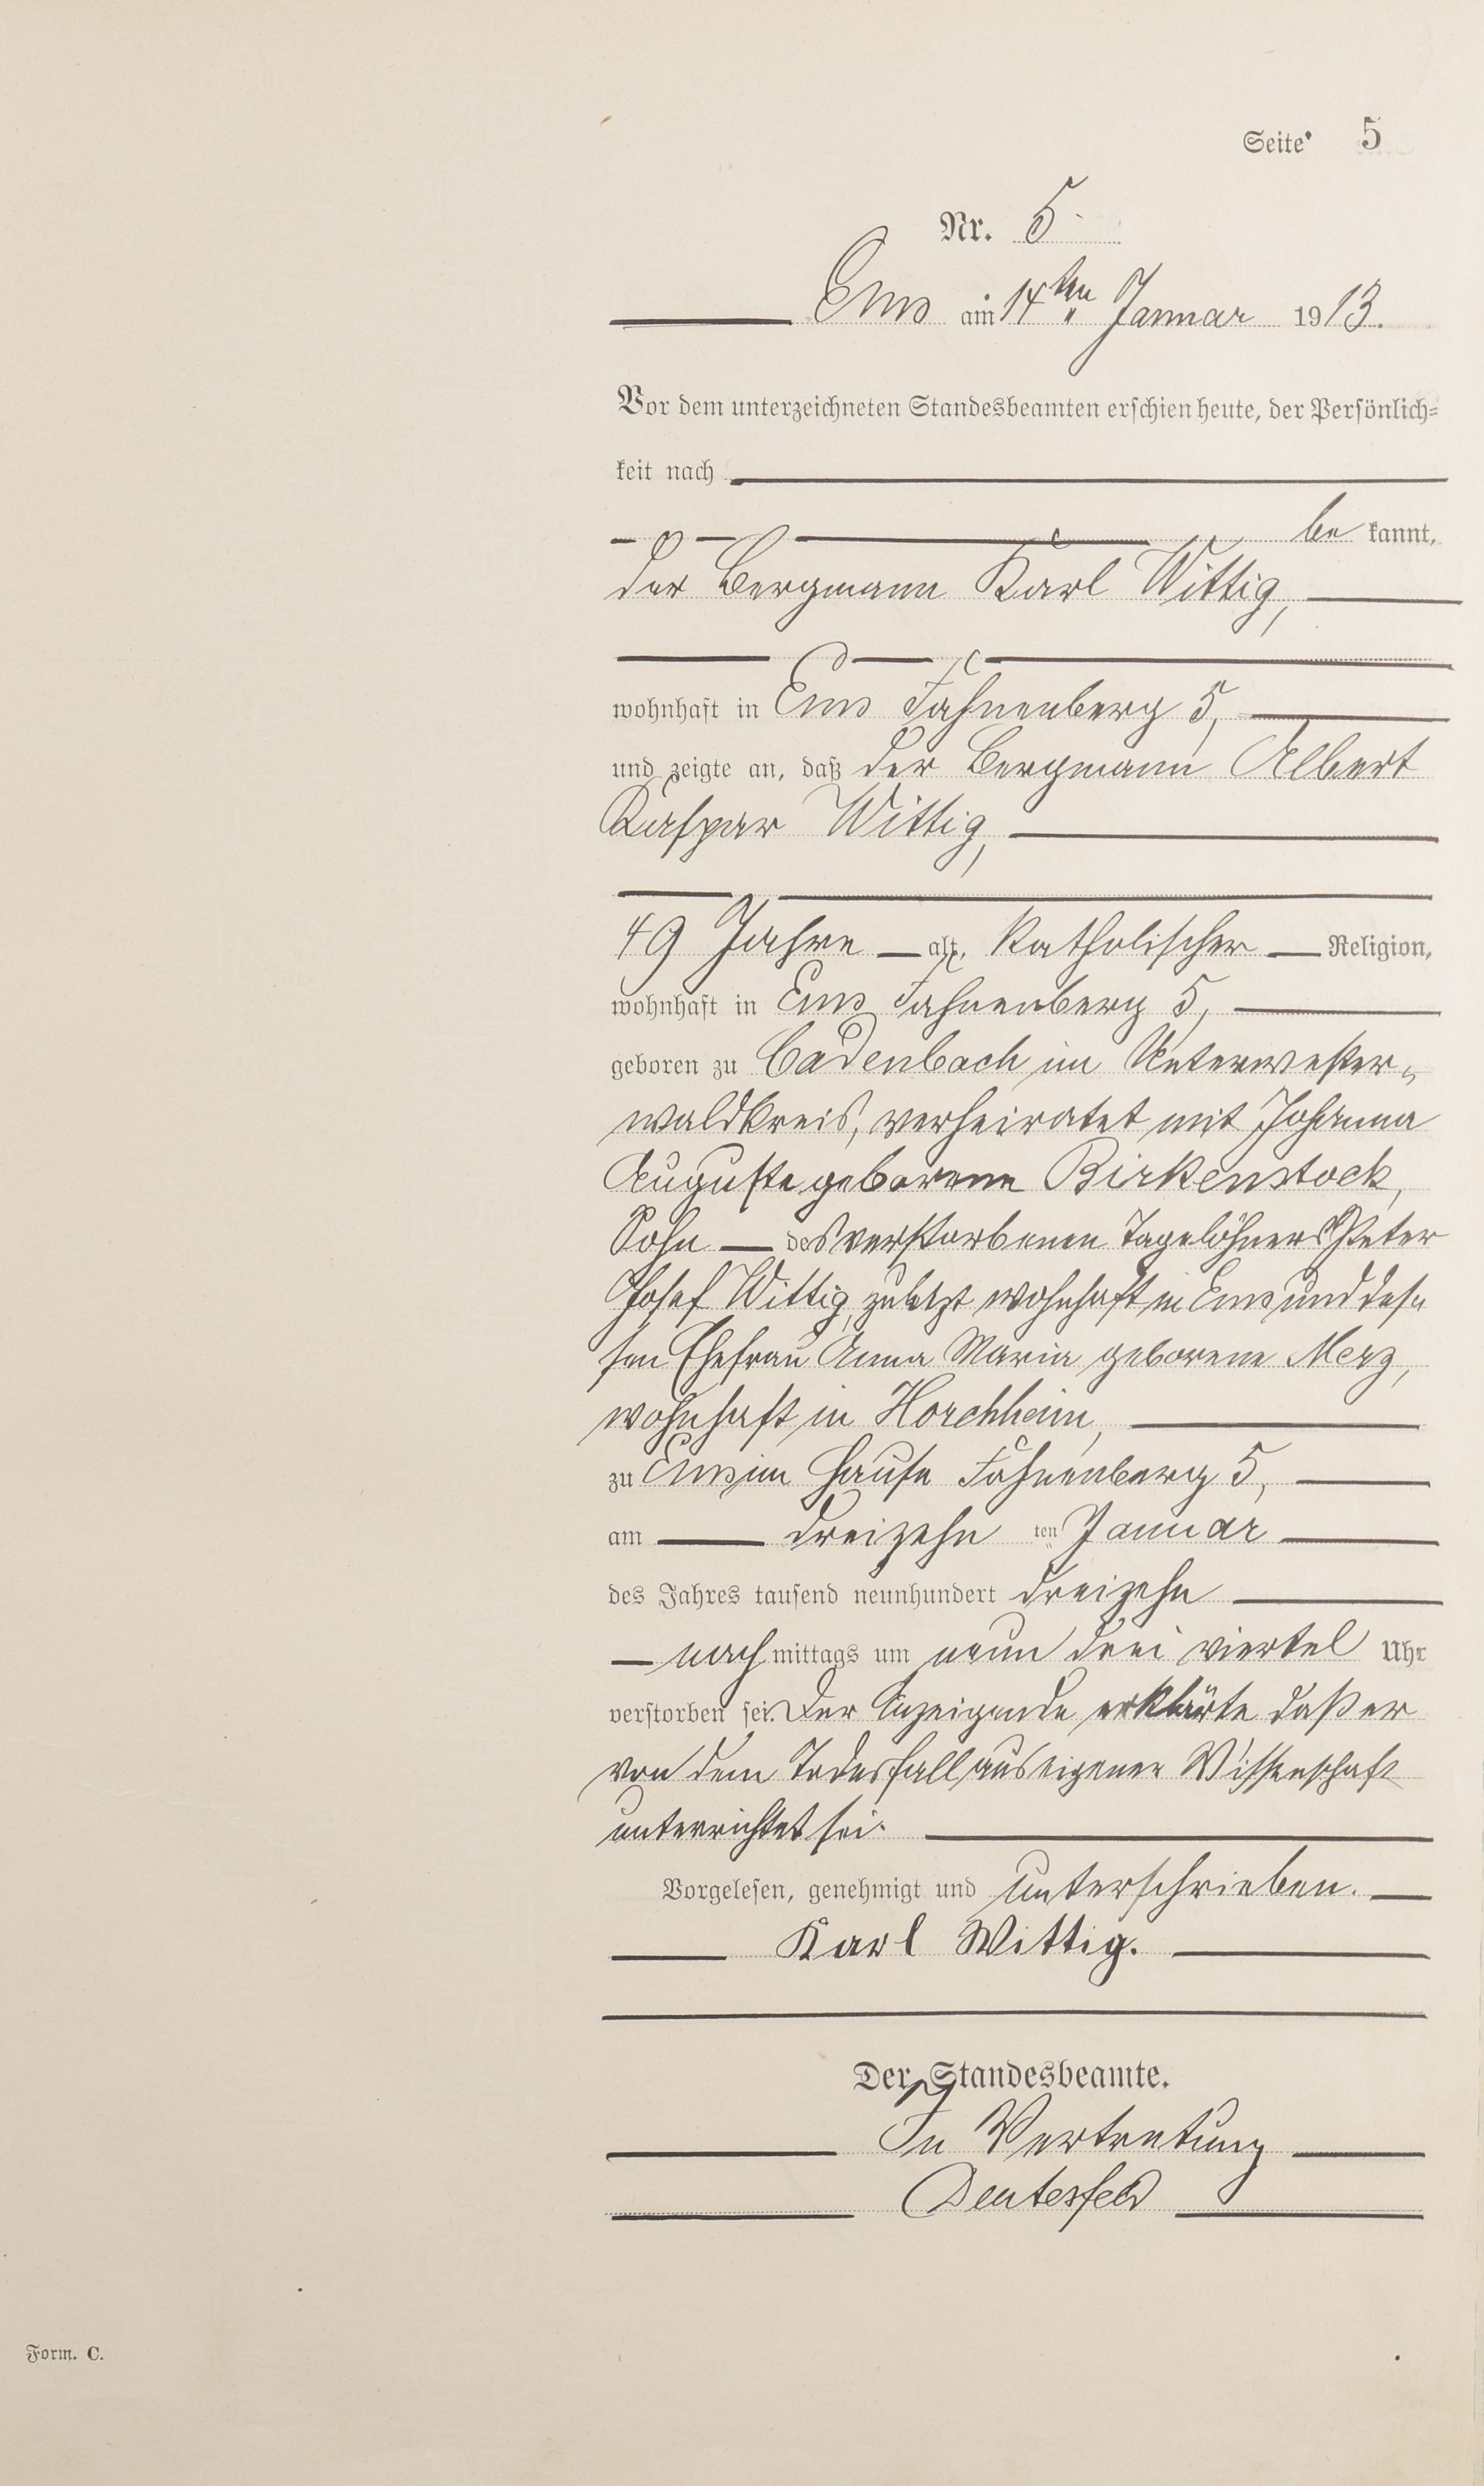 Seite 5
Nr. 5
Ems am 14ten Januar 1913.
Vor dem unterzeichneten Standesbeamten erschien heute, der Persönlich=
keit nach
be kannt,
der Bergmann Karl Wittig,
wohnhaft in Ems Fahnenberg 5,
und zeigte an, daß der Bergmann Albert
Kaspar Wittig,
49 Jahre alt, katholischer Religion,
wohnhaft in Ems Fahnenberg 5,
geboren zu Cadenbach im Unterwester=
waldkreis, verheiratet mit Johanna
Auguste geborene Birkenstock,
Sohn des verstorbenen Tagelöhners Peter
Josef Wittig, zuletzt wohnhaft in Ems und des=
sen Ehefrau Anna Maria geborene Merz,
wohnhaft in Horchheim,
zu Ems im Hause Fahnenberg 5,
am dreizehn ten Januar
des Jahres tausend neunhundert dreizehn
nach mittags um neun drei viertel Uhr
verstorben sei. Der Anzeigende erklärte daß er
von dem Todesfall aus eigener Wissenschaft
unterrichtet sei.
Vorgelesen, genehmigt und unterschrieben.
Karl Wittig.
Der Standesbeamte.
In Vertretung
Form. C.